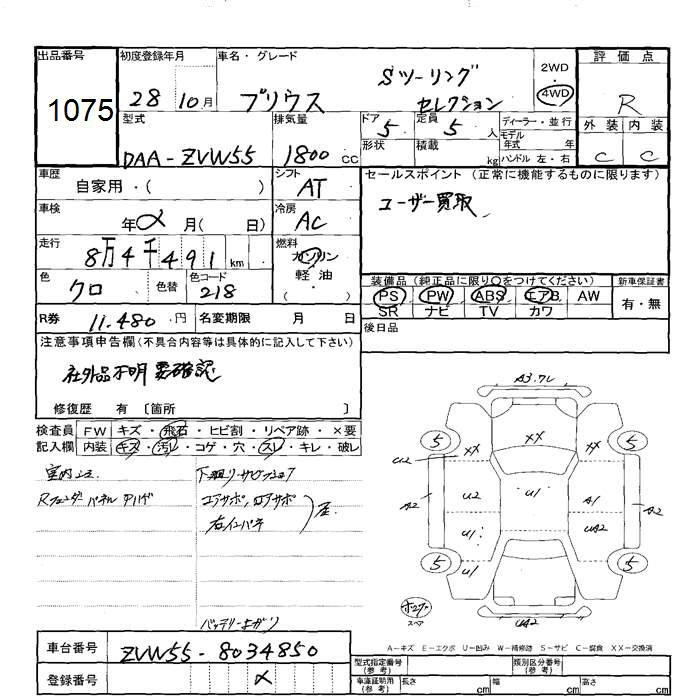 出品番号 1075
初度登録年月 28 10月
車名・グレード プリウス Sツーリング セレクション
2WD 4WD
評価点 R
外装 内装
C C
型式 DAA-ZVW55
排気量 1800 cc
ドア 5 定員 5 人
形状 積載 kg
ディーラー・並行
モデル 年式 年
ハンドル 左・右
車歴 自家用・( )
シフト AT
車検 年 月( 日)
冷房 AC
走行 8万4千491 km
燃料 ガソリン 軽油 ( )
色 クロ 色替 色コード 218
R券 11.480 円 名変期限 月 日
セールスポイント (正常に機能するものに限ります)
ユーザー買取
装備品 (純正品に限り〇をつけてください)
新車保証書
PS PW ABS エアB AW
SR ナビ TV カワ
有・無
後日品
注意事項申告欄(不具合内容等は具体的に記入して下さい)
社外品不明 要確認
修復歴 有 〔箇所 〕
検査員 FW キズ・飛石・ヒビ割・リペア跡・×要
記入欄 内装 キズ・汚レ・コゲ・穴・スレ・キレ・破レ
室内
Rフェンダーパネル
コアサポ,ロアサポ
右インパネ
バッテリー
A3 XX XX XX
5 5 5 5
A2 U2 U1 A1 A2
U1 UA2
U1
UA2
スペア
A-キズ E-エクボ U-凹み W-補修跡 S-サビ C-腐食 XX-交換済
車台番号 ZVW55-8034850
登録番号
型式指定番号 (参考) 類別区分番号 (参考)
車庫証明用 (参考) 長さ cm 幅 cm 高さ cm